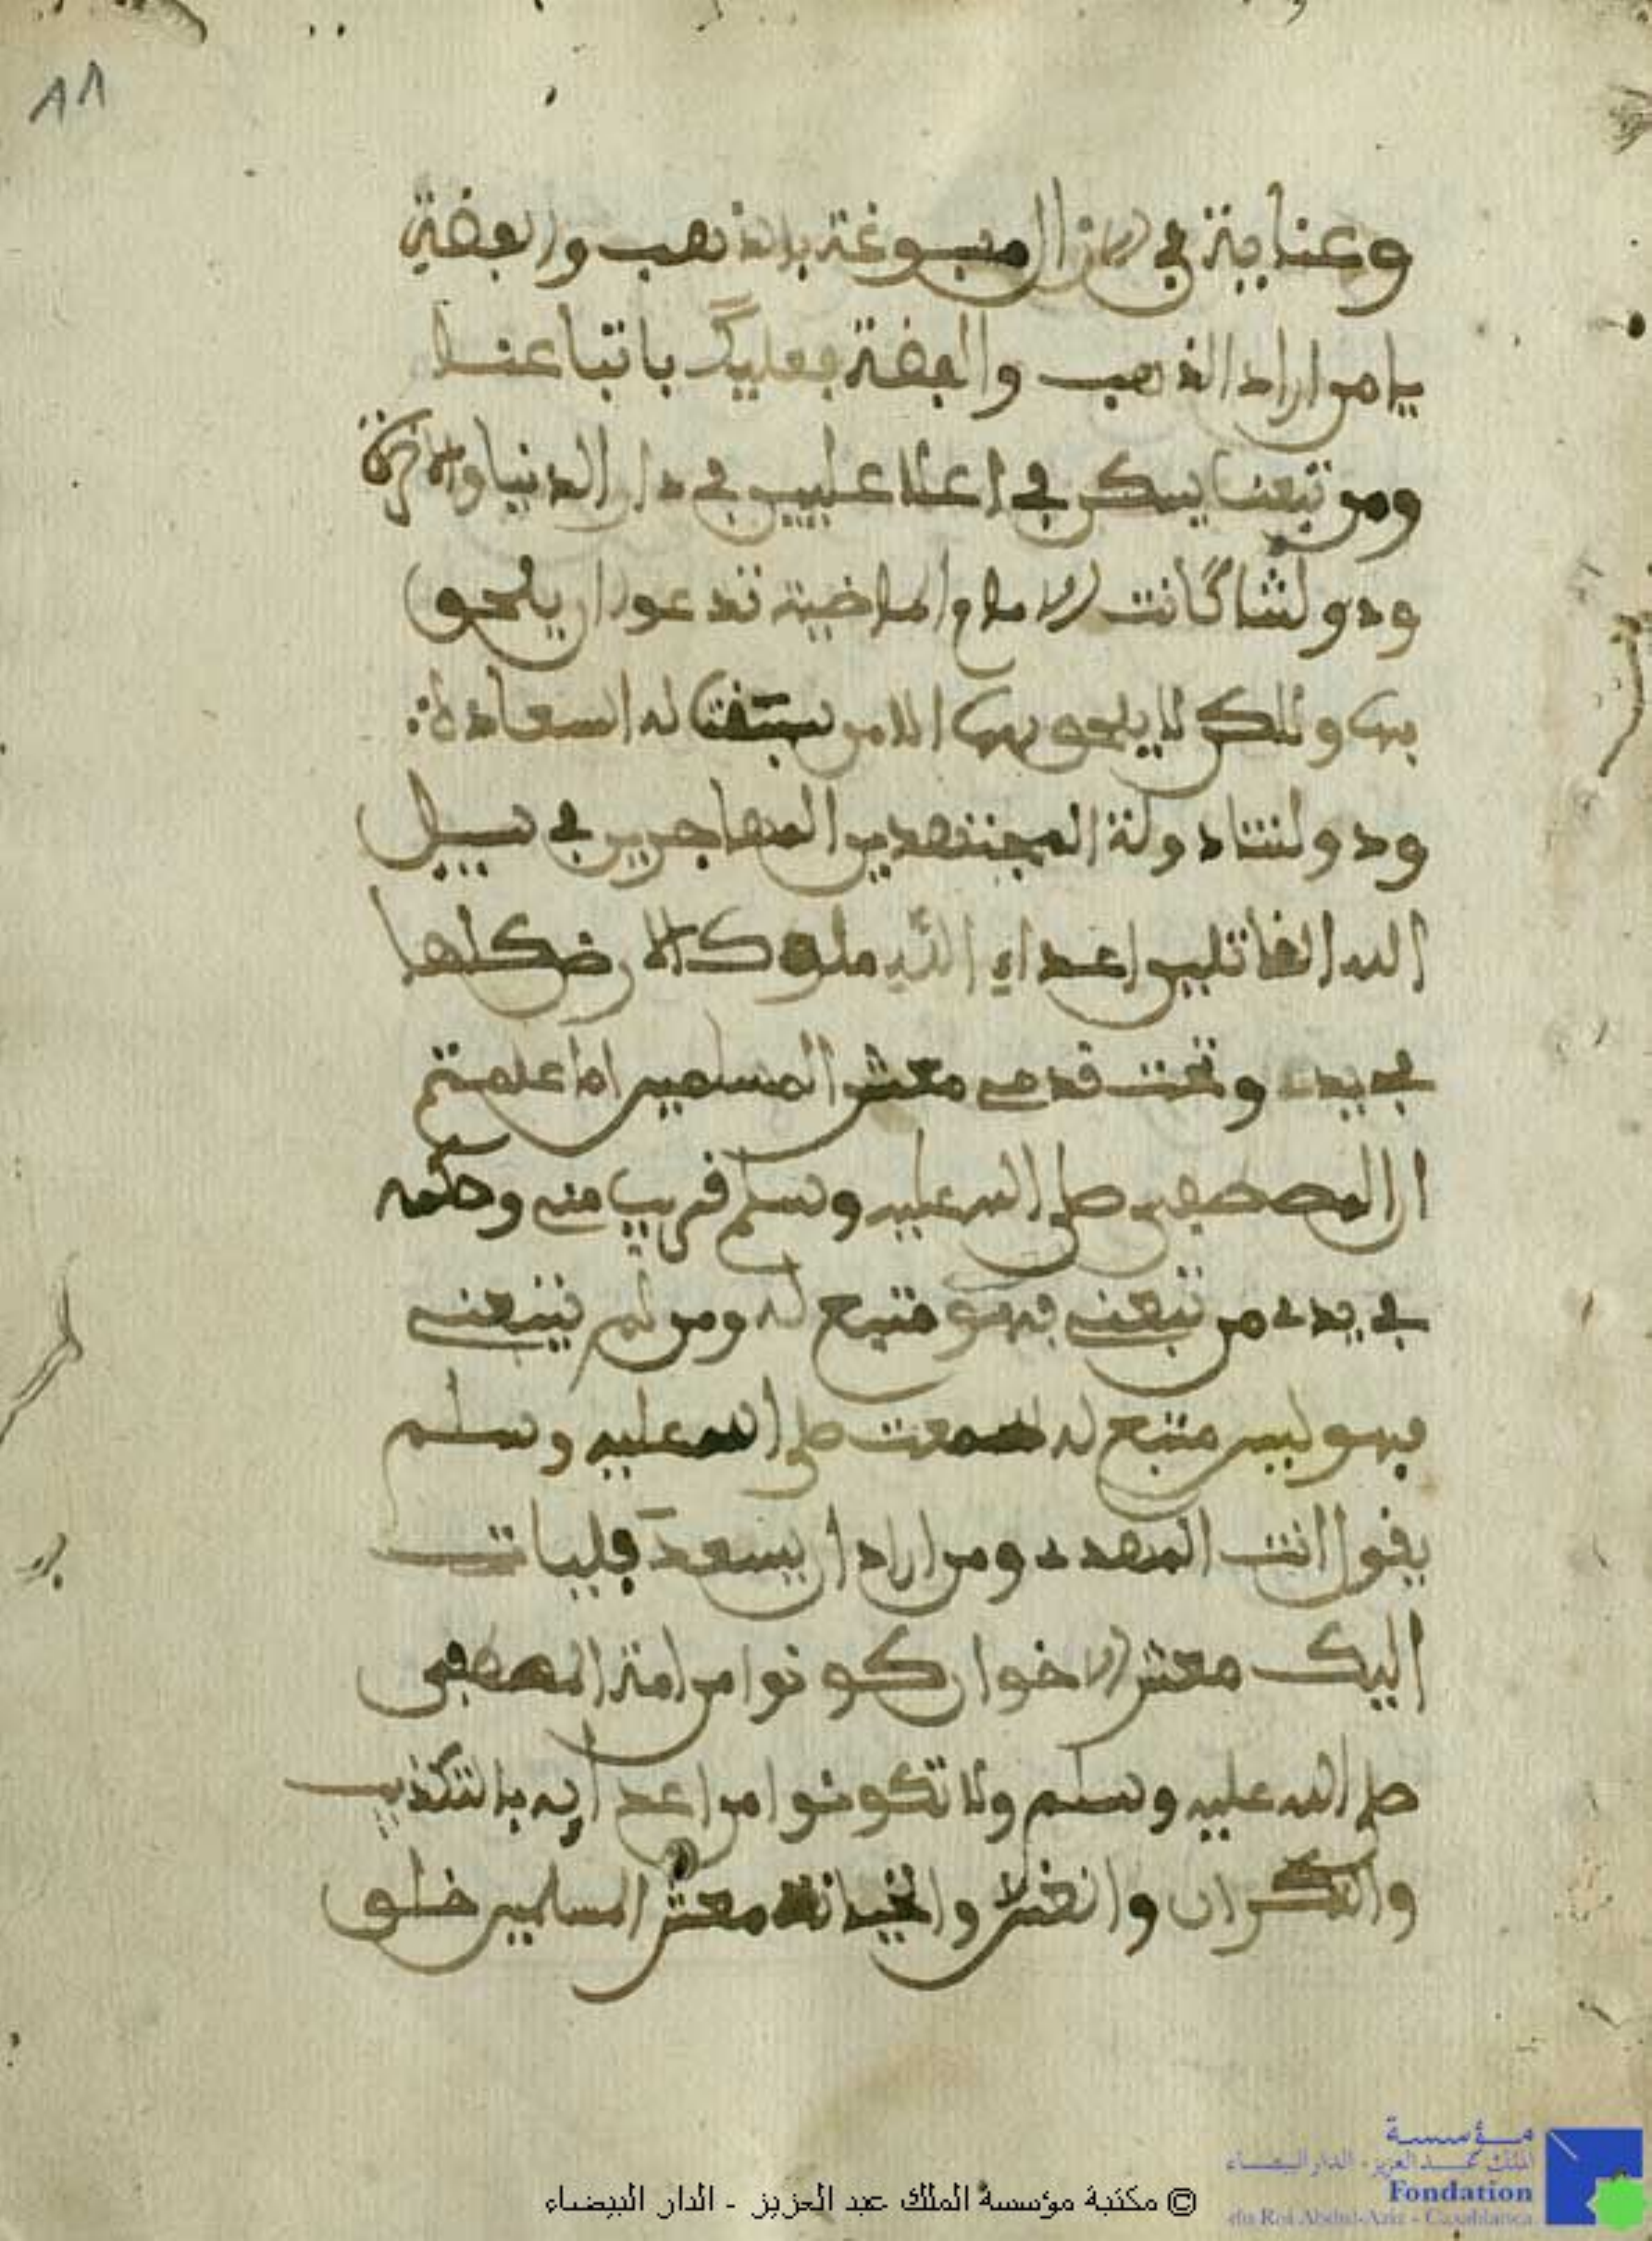 ٨٨
وعناية في الازال مصبوغة بالذهب والفضة
يا من اراد الذهب والفضة فعليك باتباعنا
ومن تبعنا يسكن في اعلا عليين في دار الدنيا والاخرة
ودولتنا كانت الامام الماضية تدعوا ان يلحق
بها ولكن لا يلحق بها الا من سبقت له السعادة
ودولتنا دولة المجتهدين المهاجرين في سبيل
الله القاتلين اعداء الله ملوك الارض كلها
في يدي وتحت قدمي معشر المسلمين اما علمتم
ان المصطفى صلى الله عليه وسلم قريب مني وحكمه
في يدي من تبعني فهو متبع له ومن لم يتبعني
فهو ليس متبع له سمعت صلى الله عليه وسلم
يقول انت المهدي ومن اراد ان يسعد فليات
اليك معشر الاخوان كونوا من امة المصطفى
صلى الله عليه وسلم ولا تكونوا من اعدايه بالتكذيب
والنكران والغش والخيانة معشر المسلمين خلق
© مكتبة مؤسسة الملك عبد العزيز - الدار البيضاء
مؤسسة
الملك عبد العزيز - الدار البيضاء
Fondation
du Roi Abdul-Aziz - Casablanca